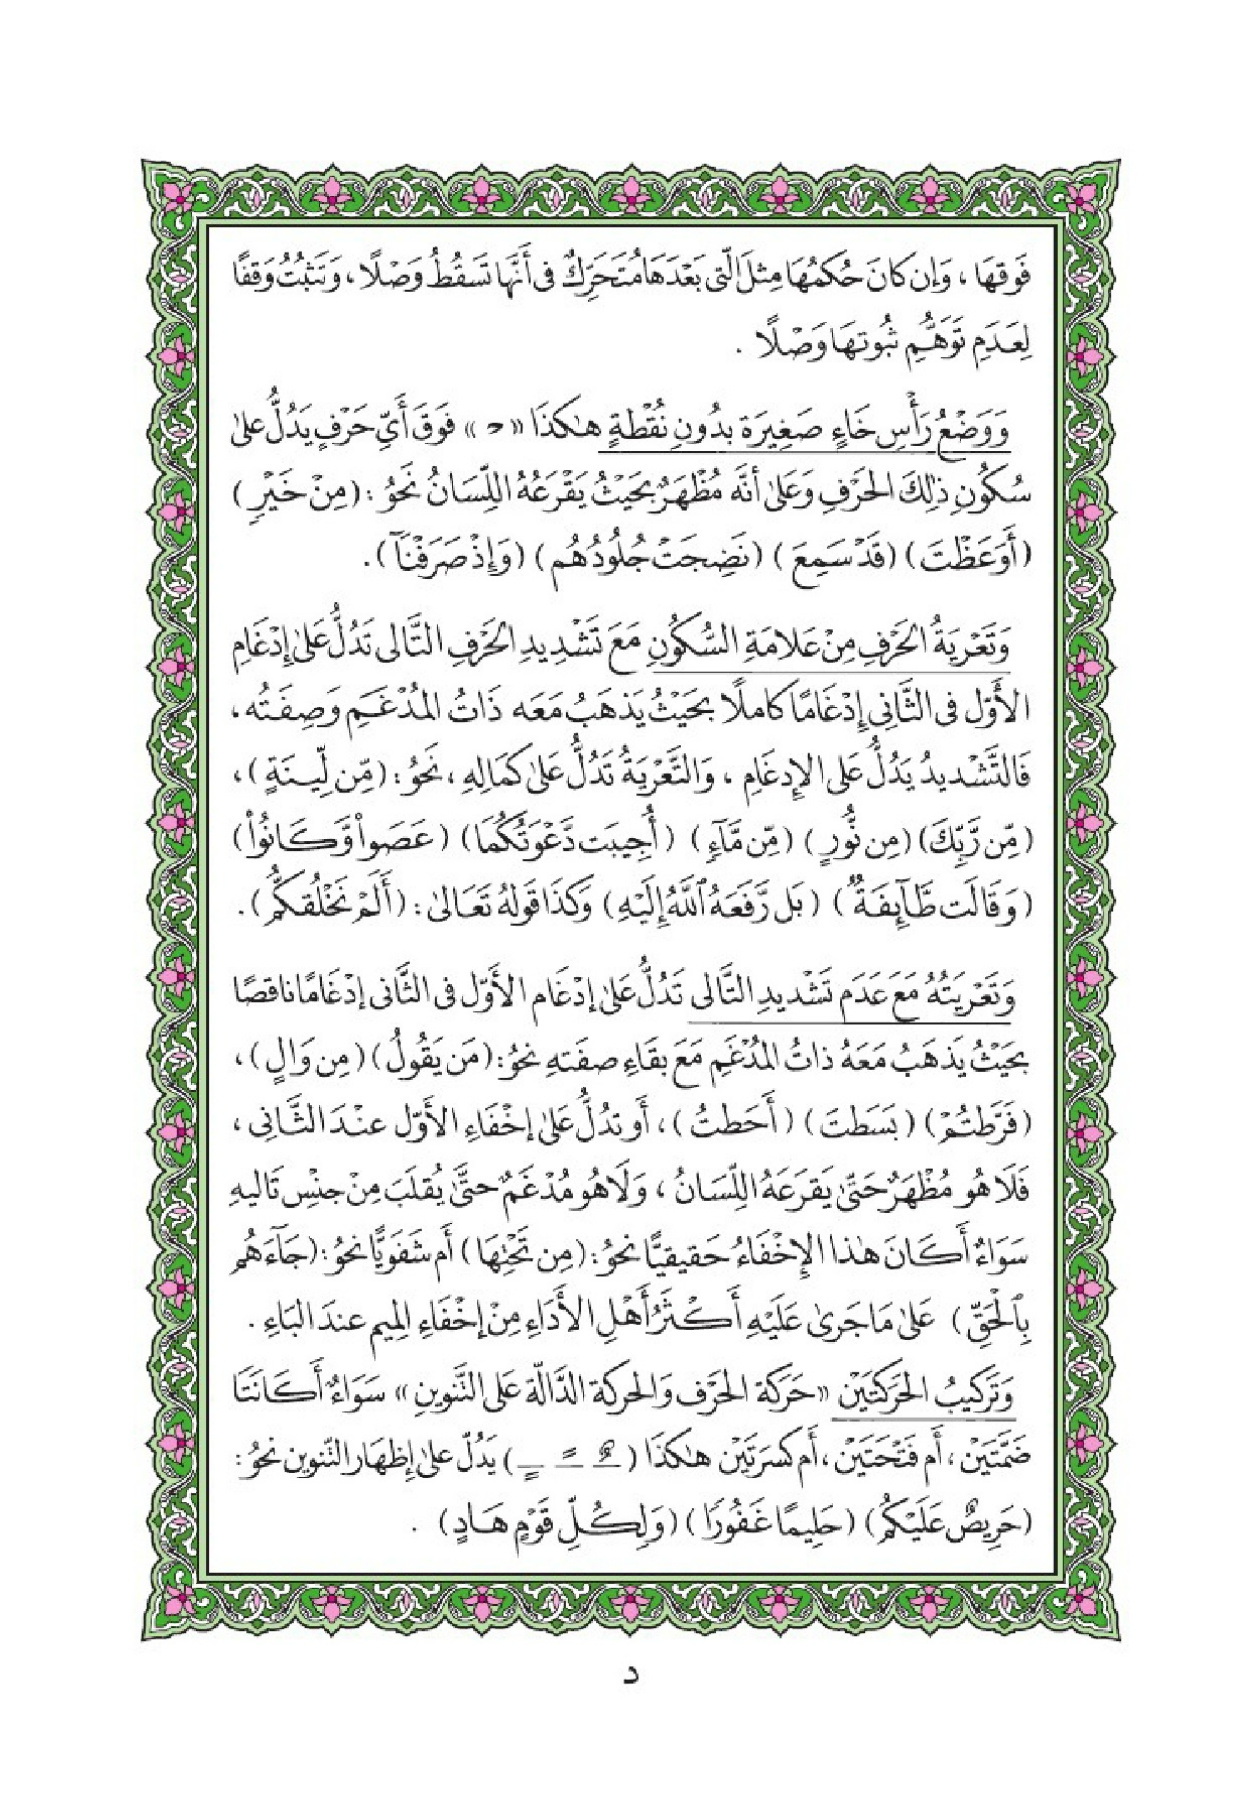 فَوقِهَا ، وَإِن كَانَ حُكمُهَا مِثلَ الَّتِى بَعْدَهَا مُتَحَرِّكٌ فِى أَنَّهَا تَسقُطُ وَصْلًا ، وَتَثبُتُ وَقفًا
لِعَدَمِ تَوَهُّمِ ثُبُوتِهَا وَصْلًا .
وَوَضْعُ رَأْسِ خَاءٍ صَغِيرَة بِدُونِ نُقْطَةٍ هٰكَذَا « حـ » فَوقَ أَيِّ حَرْفٍ يَدُلُّ عَلىٰ
سُكُونِ ذٰلِكَ الحَرْفِ وَعَلىٰ أنَّه مُظْهَرٌ بحَيْثُ يَقْرَعُهُ اللِّسَانُ نَحوُ : (مِنْ خَيْرٍ)
(أَوَعَظْتَ) (قَدْ سَمِعَ) (نَضِجَتْ جُلُودُهُم) (وَإِذْ صَرَفْنَآ) .
وَتَعْرِيَةُ الحَرْفِ مِنْ عَلامَةِ السُّكُونِ مَعَ تَشْدِيدِ الحَرْفِ التَّالى تَدُلُّ عَلىٰ إِدْغَامِ
الأَوَّل فى الثَّانِى إِدْغَامًا كامِلًا بحَيْثُ يَذهَبُ مَعَه ذَاتُ المُدْغَم وَصِفَتُه ،
فَالتَّشْديدُ يَدُلُّ عَلى الإدغَامِ ، وَالتَّعْرِيَةُ تَدُلُّ عَلىٰ كَمَالِهِ ، نَحوُ : (مِّن لِّينَةٍ) ،
(مِّن رَّبِّكَ) (مِن نُّورٍ) (مِّن مَّآءٍ) (أُجِيبَت دَّعْوَتُكُمَا) (عَصَواْ وَّكَانُواْ)
(وَقَالَت طَّآئِفَةٌ) (بَل رَّفَعَهُ ٱللَّهُ إِلَيْهِ) وَكَذَا قَولُهُ تَعَالىٰ : (أَلَمْ نَخْلُقكُّمْ) .
وَتَعْرِيَتُهُ مَعَ عَدَم تَشْديدِ التَّالى تَدُلُّ عَلىٰ إدْغَام الأَوَّل فى الثَّانى إدْغَامًا ناقصًا
بحَيْثُ يَذهَبُ مَعَهُ ذاتُ المُدْغَمِ مَعَ بقَاءِ صفَتهِ نحوُ : (مَن يَقُولُ) (مِن وَالٍ) ،
(فَرَّطتُمْ) (بَسَطتَ) (أَحَطتُ) ، أَو تدُلُّ عَلىٰ إخْفَاءِ الأَوَّل عندَ الثَّانى ،
فَلاَ هُو مُظْهَرٌ حَتَّى يَقرَعَهُ اللِّسَانُ ، وَلَا هُو مُدْغَمٌ حتَّى يُقلَبَ مِنْ جنْسِ تَاليهِ
سَوَاءٌ أَكَانَ هٰذا الإخْفَاءُ حَقيقيًّا نحوُ : (مِن تَحْتِهَا) أَم شَفَويًّا نحوُ : (جَآءَهُم
بِٱلْحَقِّ) عَلىٰ مَا جَرىٰ عَلَيْهِ أَكْثَرُ أَهْلِ الأَدَاءِ مِنْ إخْفَاءِ المِيم عندَ البَاءِ .
وَتَركيبُ الحَرَكتَيْن «حَرَكَة الحَرْف وَالحركَة الدَّالَّة عَلى التَّنوين» سَوَاءٌ أَكَانَتَا
ضَمَّتَيْن ، أَم فَتْحَتَيْن ، أَم كَسرَتَيْن هٰكَذَا ( ـٌ ـً ـٍ ) يَدُلّ عَلىٰ إظهَار التَّنوين نحوُ :
(حَرِيصٌ عَلَيْكُم) (حَلِيمًا غَفُورًا) (وَلِكُلِّ قَوْمٍ هَادٍ) .
د